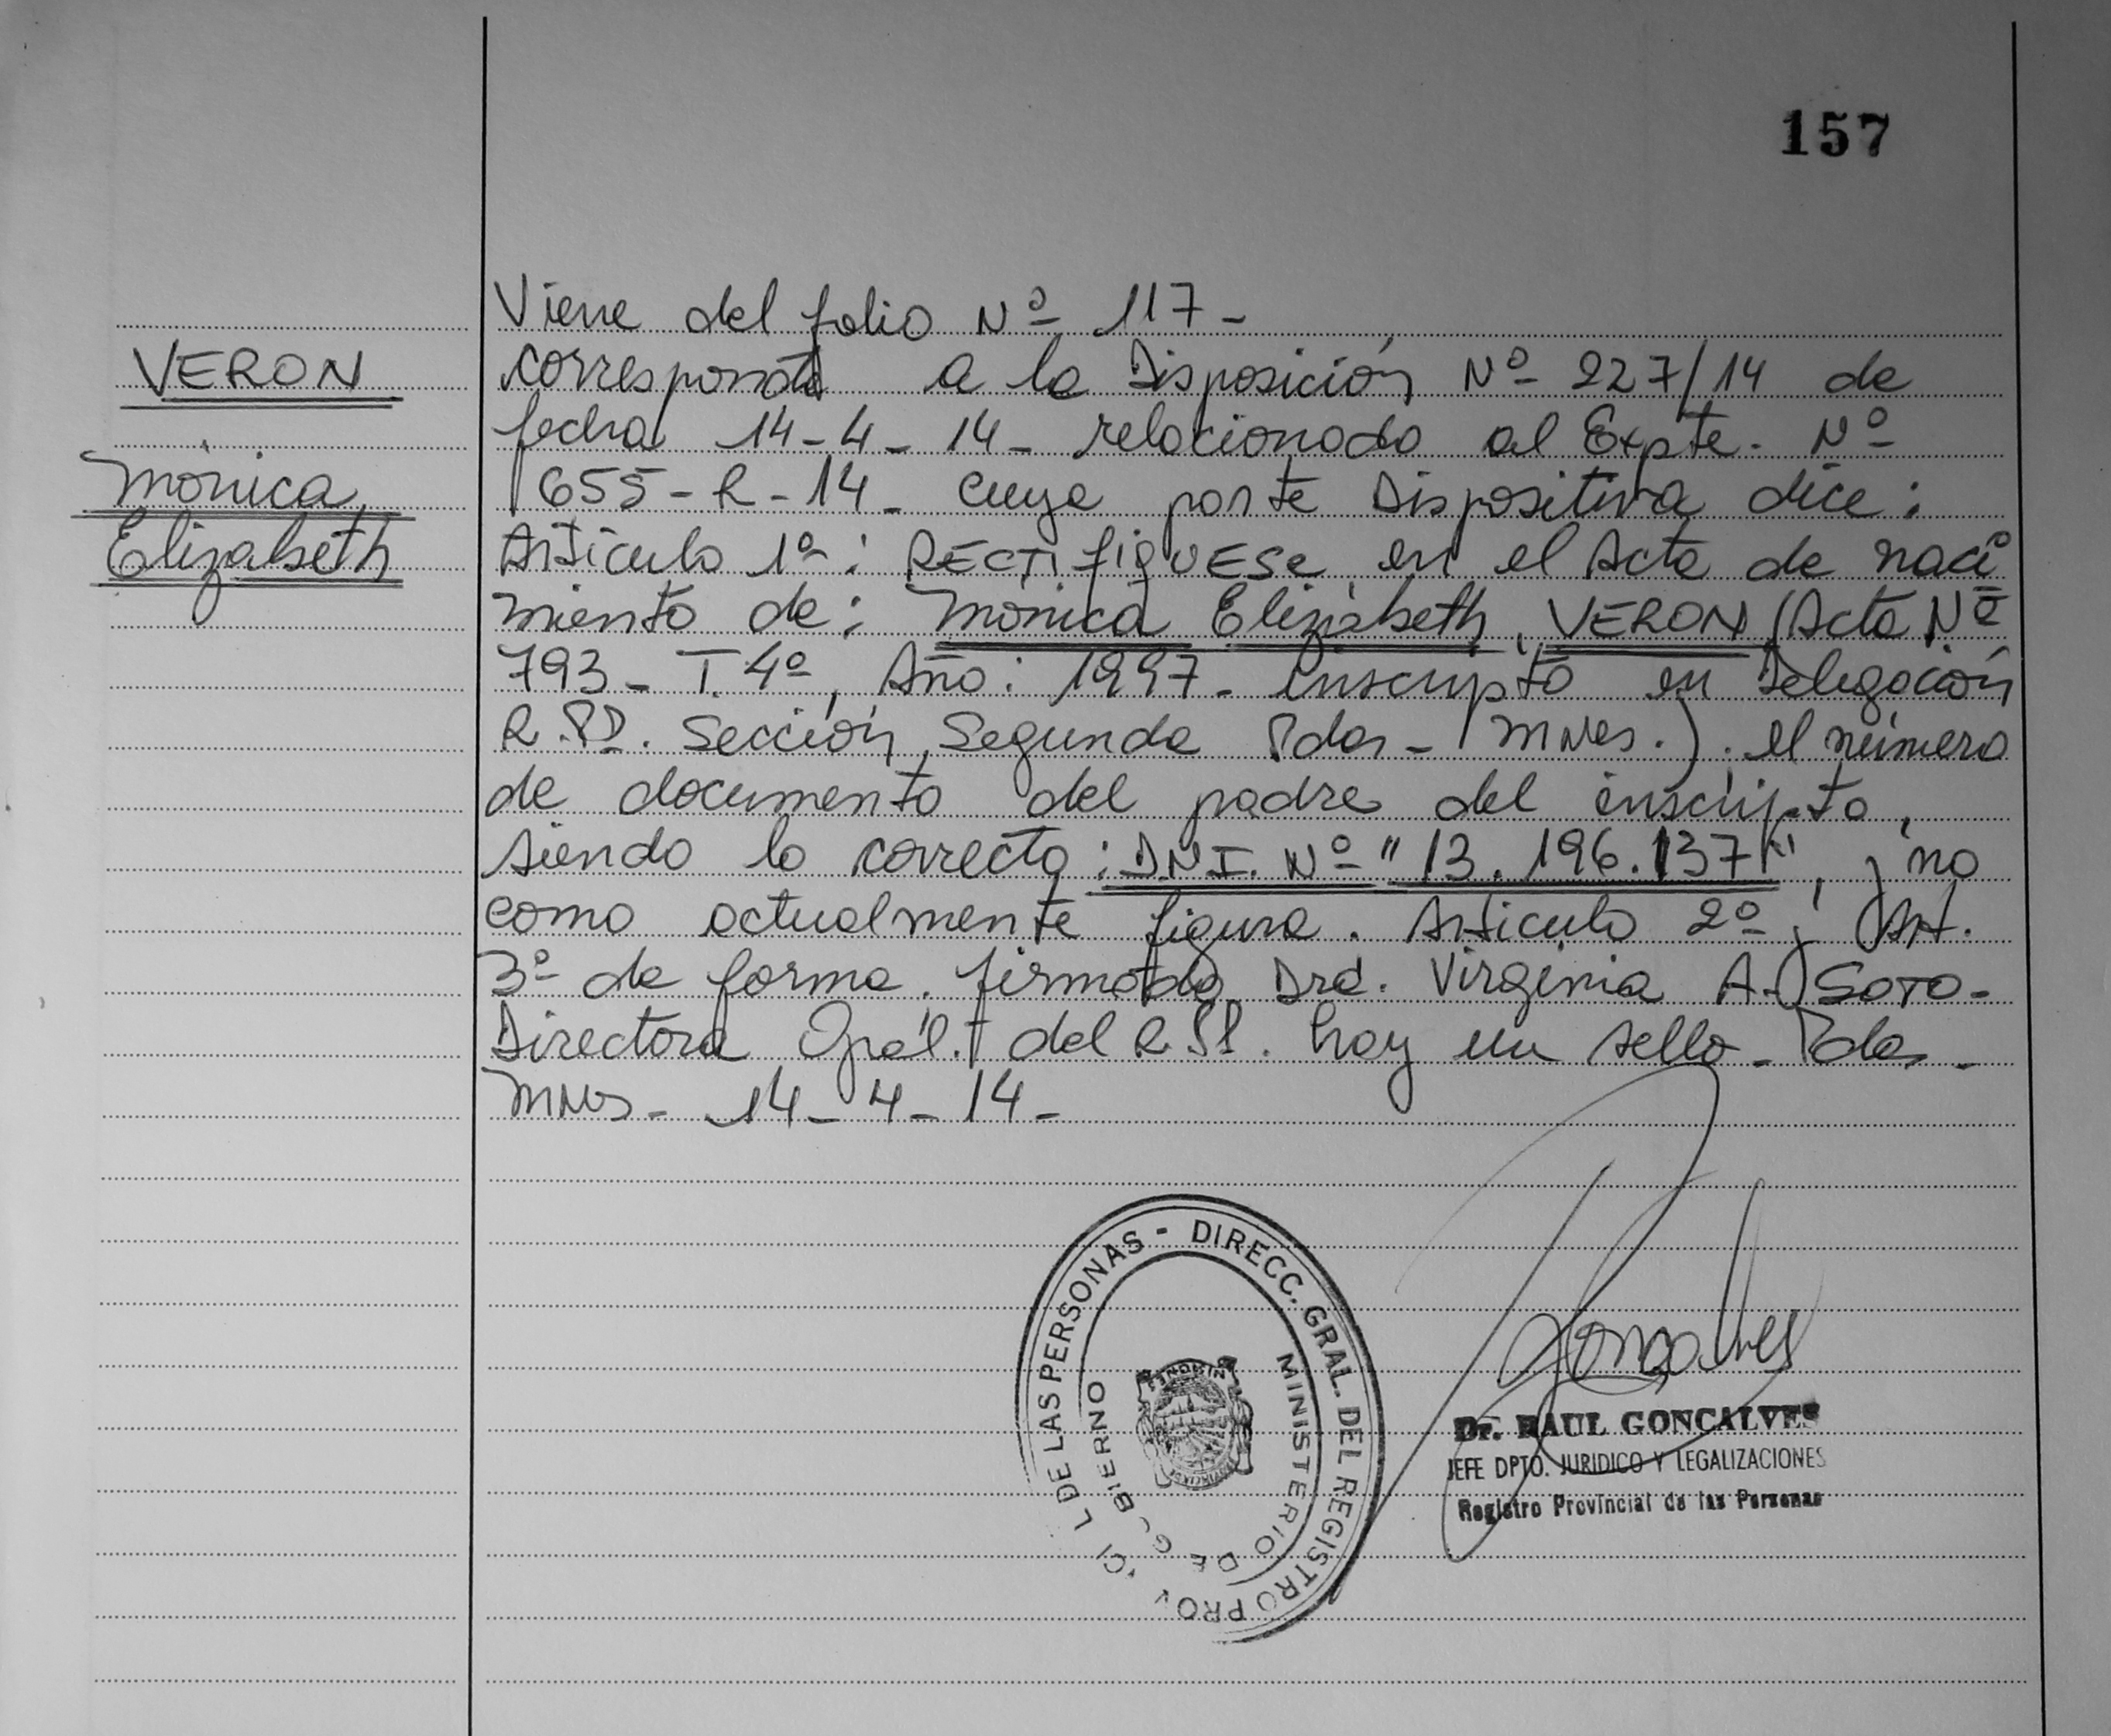 157
Viene del folio Nº 117-
VERON
corresponde a la Disposición Nº 227/14 de
fecha 14-4-14- relacionado al Expte. Nº
Mónica
655-R-14- cuya parte Dispositiva dice:
Elizabeth
Artículo 1º: RECTIFIQUESE en el Acta de naci
miento de: Mónica Elizabeth, VERON (Acta Nº
793- T. 4º, Año: 1997- Inscripto en Delegación
R.P.P. Sección Segunda Pdas- Mnes.). el número
de documento del padre del inscripto,
siendo lo correcto: D.N.I. Nº "13.196.137", y no
como actualmente figura. Artículo 2º y Art.
3º de forma. firmado Dra. Virginia A. SOTO-
Directora Gral. del R.P.P. hay un sello- Pdas-
Mnes- 14-4-14-
DIRECC. GRAL. DEL REGISTRO PROV CI L DE LAS PERSONAS -
MINISTERIO DE G BIERNO
MISIONES
Goncalves
Dr. RAUL GONCALVES
JEFE DPTO. JURIDICO Y LEGALIZACIONES
Registro Provincial de las Personas